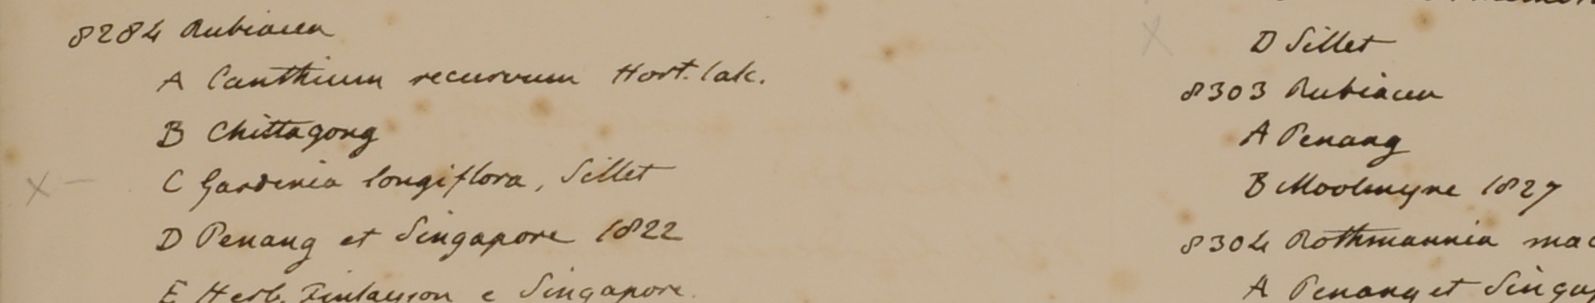 8284 Rubiacea
A Canthium recurvum Hort. Calc.
B Chittagong
C Gardenia longiflora, Sillet
D Penang et Singapore 1822
E Herb. Finlayson e Singapore.
D Sillet
8303 Rubiacea
A Penang
B Moolmyne 1827
8304 Rothmannia mac
A Penang et Singa